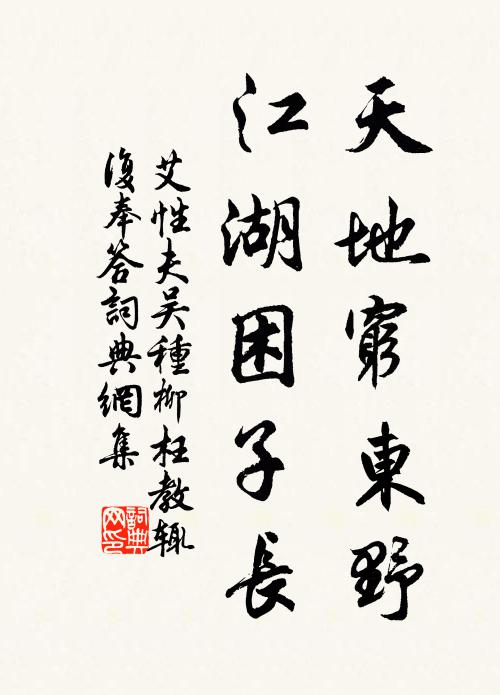 天地窮東野
江湖困子長
艾性夫吴種柳枉教輒
復奉答詞典網集
詞典网印